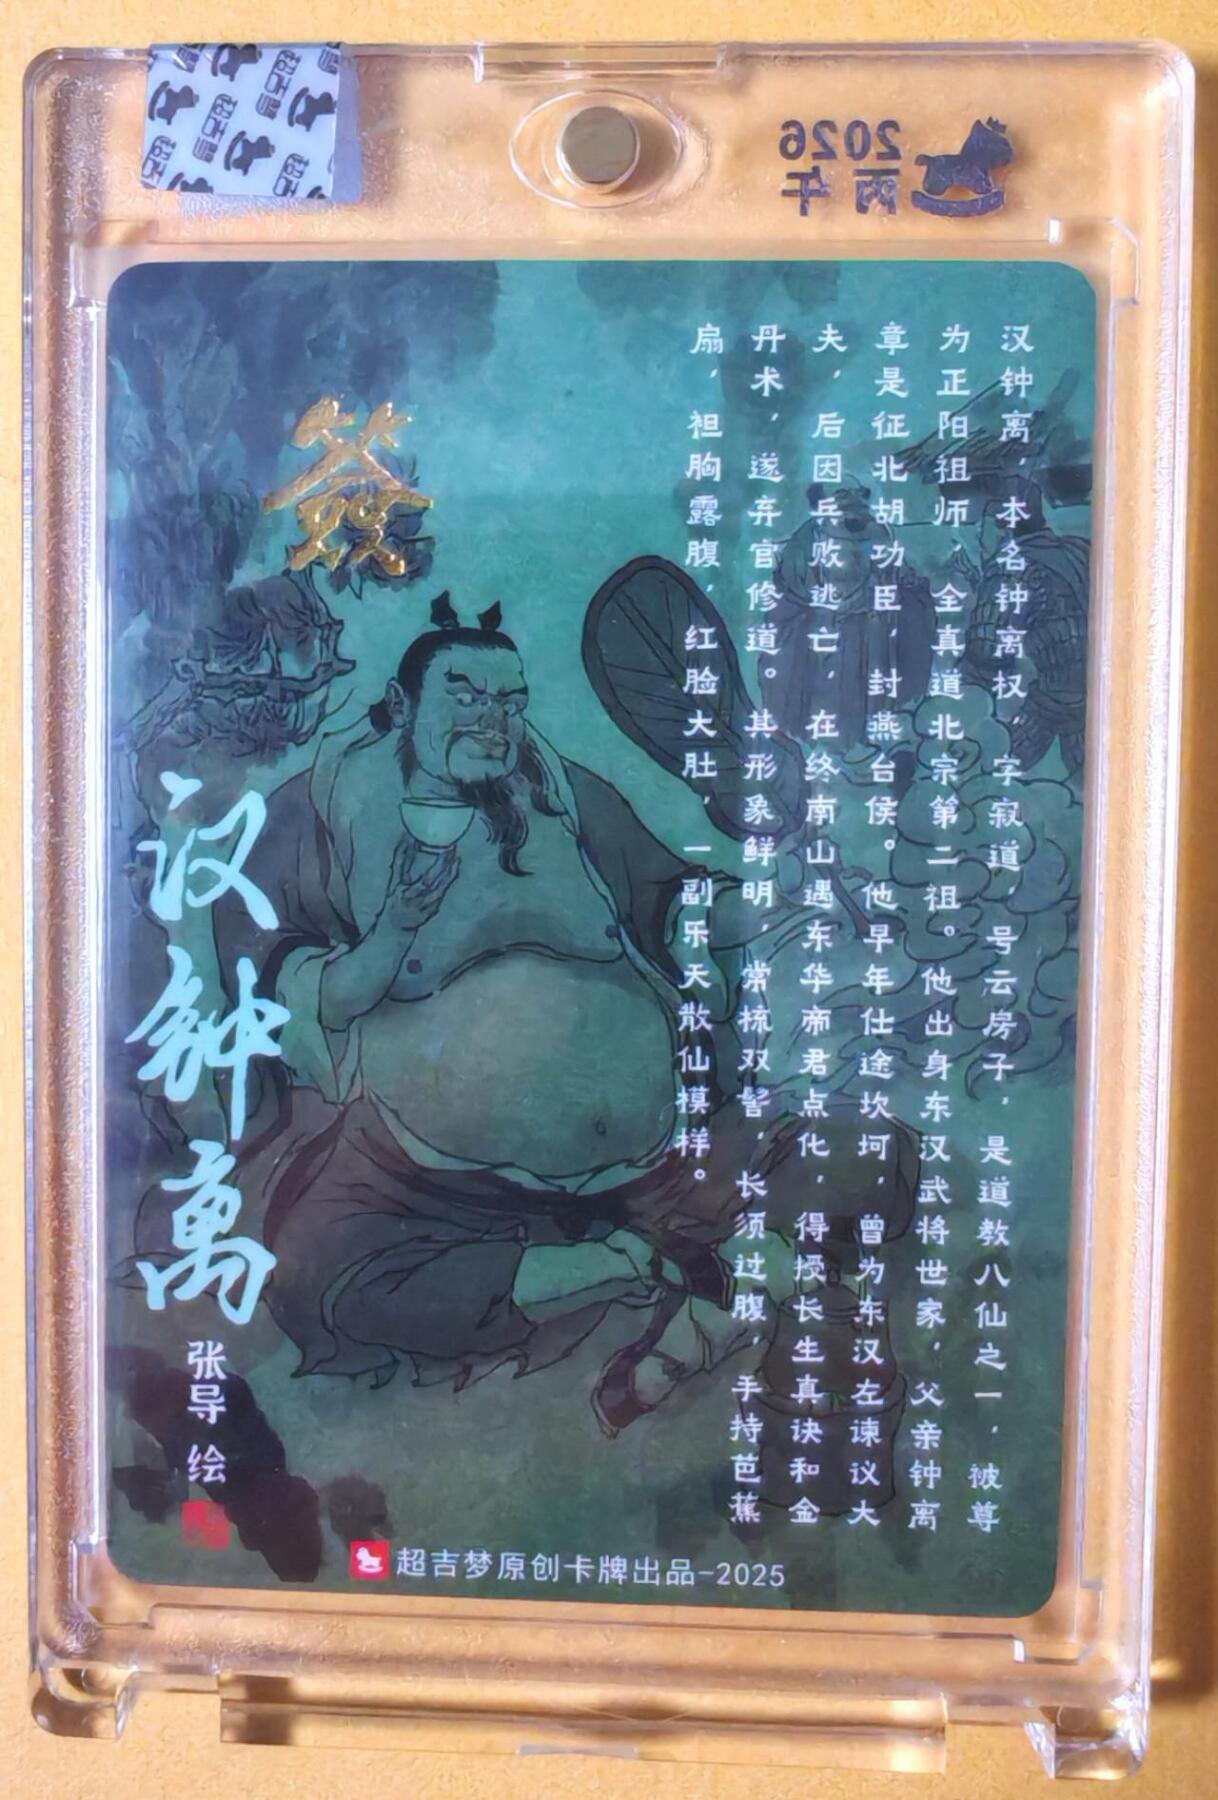 2026
丙午
汉钟离，本名钟离权，字寂道，号云房子，是道教八仙之一，被尊
为正阳祖师，全真道北宗第二祖。他出身东汉武将世家，父亲钟离
章是征北胡功臣，封燕台侯。他早年仕途坎坷，曾为东汉左谏议大
夫，后因兵败逃亡，在终南山遇东华帝君点化，得授长生真诀和金
丹术，遂弃官修道。其形象鲜明，常梳双髻，长须过腹，手持芭蕉
扇，袒胸露腹，红脸大肚，一副乐天散仙模样。
签
汉钟离
张导 绘
超吉梦原创卡牌出品-2025